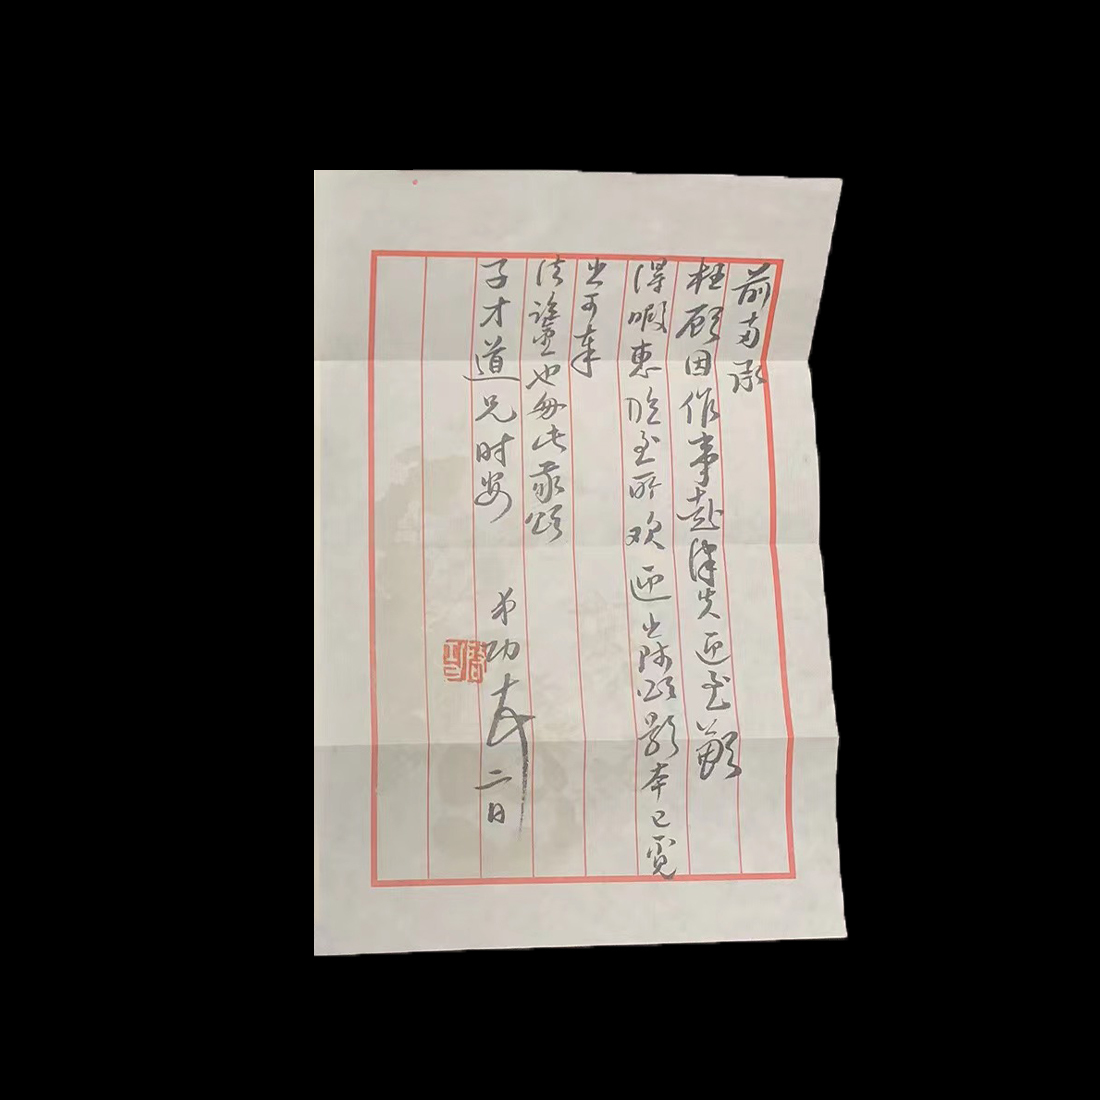 前 承
枉顾因作事赴津失迎至歉
得暇惠临至所欢迎之 颂影本已觅
出可奉
法鉴也匆此敬颂
子才道兄时安
弟功 二日